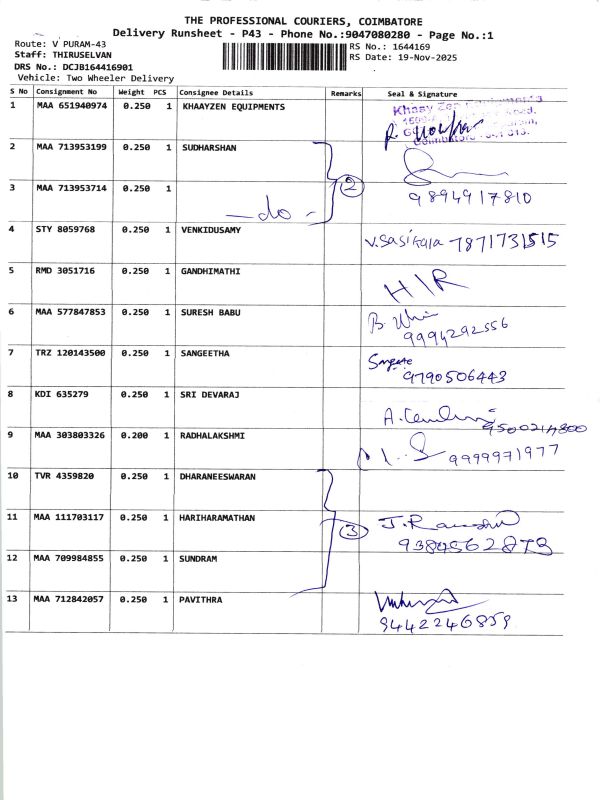 THE PROFESSIONAL COURIERS, COIMBATORE
Delivery Runsheet - P43 - Phone No.:9047080280 - Page No.:1
Route: V PURAM-43
Staff: THIRUSELVAN
DRS No.: DCJB164416901
Vehicle: Two Wheeler Delivery
RS No.: 1644169
RS Date: 19-Nov-2025
S No Consignment No Weight PCS Consignee Details Remarks Seal & Signature
1 MAA 651940974 0.250 1 KHAAYZEN EQUIPMENTS
2 MAA 713953199 0.250 1 SUDHARSHAN
3 MAA 713953714 0.250 1 - do - 2 9894917810
4 STY 8059768 0.250 1 VENKIDUSAMY V.Sasikala 7871731515
5 RMD 3051716 0.250 1 GANDHIMATHI H/R
6 MAA 577847853 0.250 1 SURESH BABU 9994292556
7 TRZ 120143500 0.250 1 SANGEETHA 9790506443
8 KDI 635279 0.250 1 SRI DEVARAJ
9 MAA 303803326 0.200 1 RADHALAKSHMI 9999971977
10 TVR 4359820 0.250 1 DHARANEESWARAN
11 MAA 111703117 0.250 1 HARIHARAMATHAN 3
12 MAA 709984855 0.250 1 SUNDRAM
13 MAA 712842057 0.250 1 PAVITHRA 9442246859